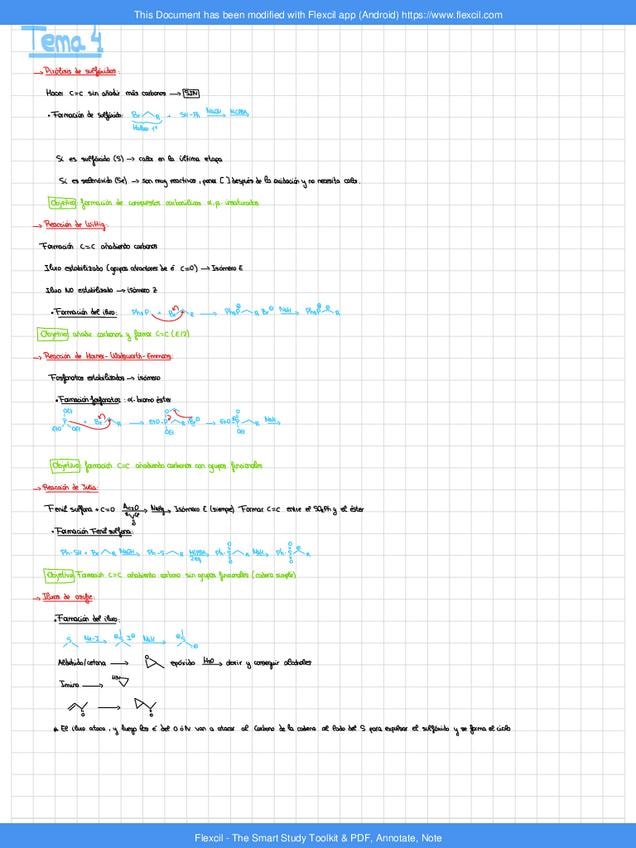 This Document has been modified with Flexcil app (Android) https://www.flexcil.com
Tema 4
→ Pirólisis de sulfóxidos:
Hacer C=C sin añadir más carbonos → SIN
• Formación de sulfóxido: Br R + SH-Ph NaOH MCPBA
Haluro 1º
Si es sulfóxido (S) → calor en la última etapa
Si es selenóxido (Se) → son muy reactivos, poner [ ] después de la oxidación y no necesita calor.
Objetivo: formación de compuestos carbonílicos α,β-insaturados
→ Reacción de Wittig:
Formación C=C añadiendo carbonos
Iluro estabilizado (grupos atractores de e⁻ C=O) → Isómero E
Iluro NO estabilizado → isómero Z
• Formación del iluro: Ph₃P + Br R → Ph₃P R Br NaH Ph₃P R
Objetivo: añadir carbonos y formar C=C (E/Z)
→ Reacción de Horner-Wadsworth-Emmons:
Fosfonatos estabilizados → isómero
• Formación fosfonatos: α-bromo éster
OEt
EtO P OEt + Br R → EtO-P R Br → EtO P R NaH
OEt OEt
Objetivo: formación C=C añadiendo carbonos con grupos funcionales
→ Reacción de Julia:
Fenil sulfona + C=O Ac₂O Na/Hg Isómero E (siempre) Formar C=C entre el SO₂Ph y el éster
• Formación Fenil sulfona:
Ph-SH + Br R NaOH Ph-S R MCPBA 2eq Ph S R NaH Ph S R
Objetivo: Formación C=C añadiendo carbono sin grupos funcionales (cadena simple)
→ Iluros de azufre:
• Formación del iluro:
S Me-I S I NaH S
Aldehído/cetona → O epóxido H₂O abrir y conseguir alcoholes
Imina → HN
O → O
* El iluro ataca, y luego los e⁻ del O ó N van a atacar al carbono de la cadena al lado del S para expulsar el sulfóxido y se forma el ciclo
Flexcil - The Smart Study Toolkit & PDF, Annotate, Note